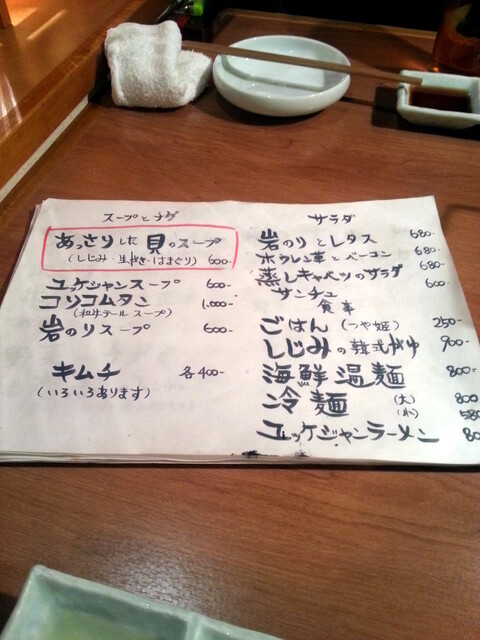 スープとナベ
あっさりした貝のスープ
(しじみ・生かき・はまぐり) 600-
ユケジャンスープ 600-
コリコムタン 1,000-
(和牛テールスープ)
岩のりスープ 600-
キムチ 各400-
(いろいろあります)
サラダ
岩のりとレタス 680-
ホウレン草とベーコン 680-
蒸しキャベツのサラダ 680-
サンチュ 600-
食事
ごはん (つや姫) 250-
しじみの韓式がゆ 900-
海鮮温麺 800-
冷麺 (大) 800
(小) 580
ユッケジャンラーメン 80